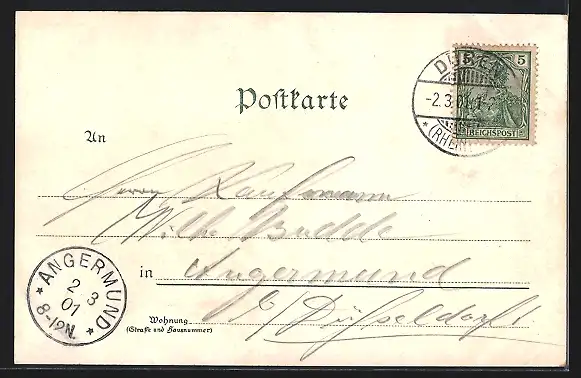 Postkarte
5 5
-2.3.01
* (RHEIN
REICHSPOST
An
Herrn Kaufmann
Wilh. Budde
in Angermund
b/ Düsseldorf.
* ANGERMUND *
2 3
01
8-12N.
Wohnung
(Straße und Hausnummer)